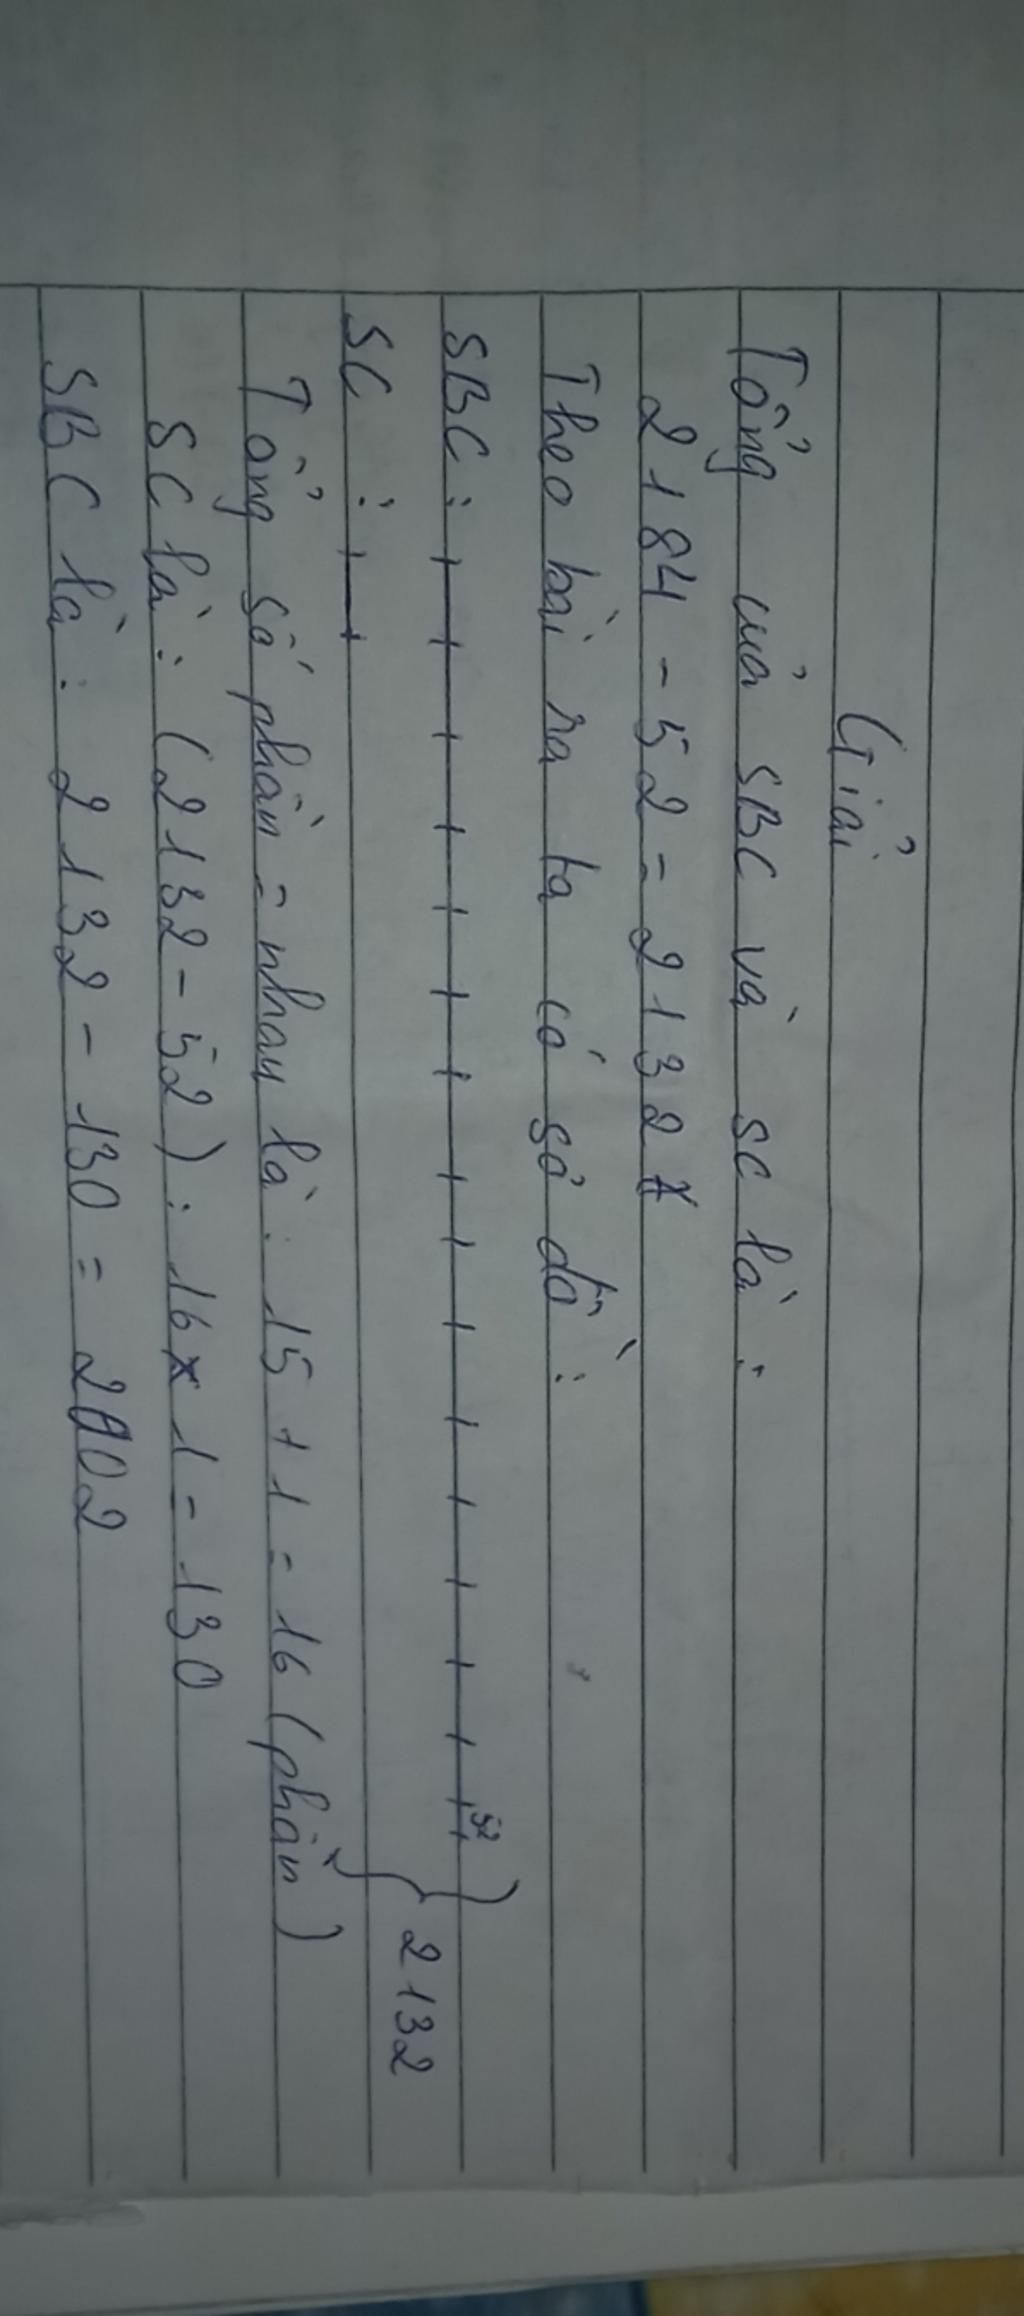 Giải
Tổng của SBC và SC là :
2184 - 52 = 2132
Theo bài ra ta có sơ đồ :
SBC : 52
2132
SC :
Tổng số phần = nhau là : 15 + 1 = 16 (phần)
SC là : (2132 - 52) : 16 x 1 = 130
SBC là : 2132 - 130 = 2002